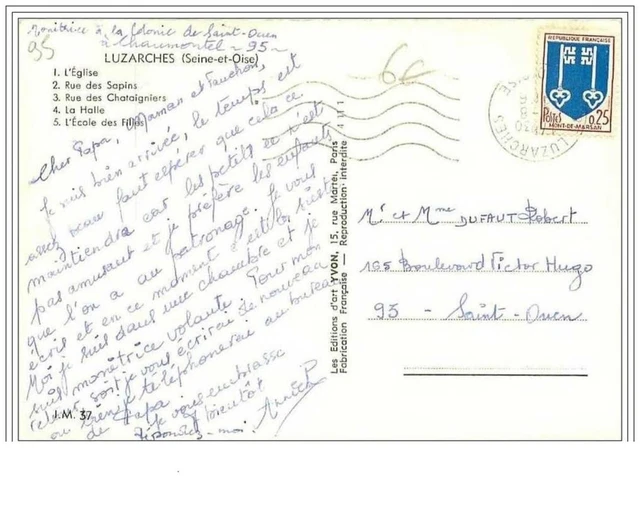 Monitrice à la Colonie de Saint-Ouen
à Chaumontel - 95 -
95
LUZARCHES (Seine-et-Oise)
1. L'Église
2. Rue des Sapins
3. Rue des Chataigniers
4. La Halle
5. L'École des Filles
6€
Cher Papa, Maman et
Je suis bien arrivée, le temps est
assez beau faut espérer que cela ce
maintiendra car les petits ce n'est
pas amusant et je préfère les enfants
que l'on a au patronage. Je vous
écris et en ce moment c'est la sieste
Moi je suis dans une chambre et je
suis monitrice volante. Pour mon
retour soit je vous écrirai de nouveau
ou bien je téléphonerai au bureau
de Papa
Je vous embrasse
bientôt
Répondez-moi.
Annick
J.M. 37
Les Editions d'art YVON, 15, rue Martel, Paris
Fabrication Française — Reproduction interdite
REPUBLIQUE FRANÇAISE
Postes 0,25
MONT-DE-MARSAN
LUZARCHES
Mr et Mme DUFAUT Robert
105 Boulevard Victor Hugo
93 - Saint-Ouen